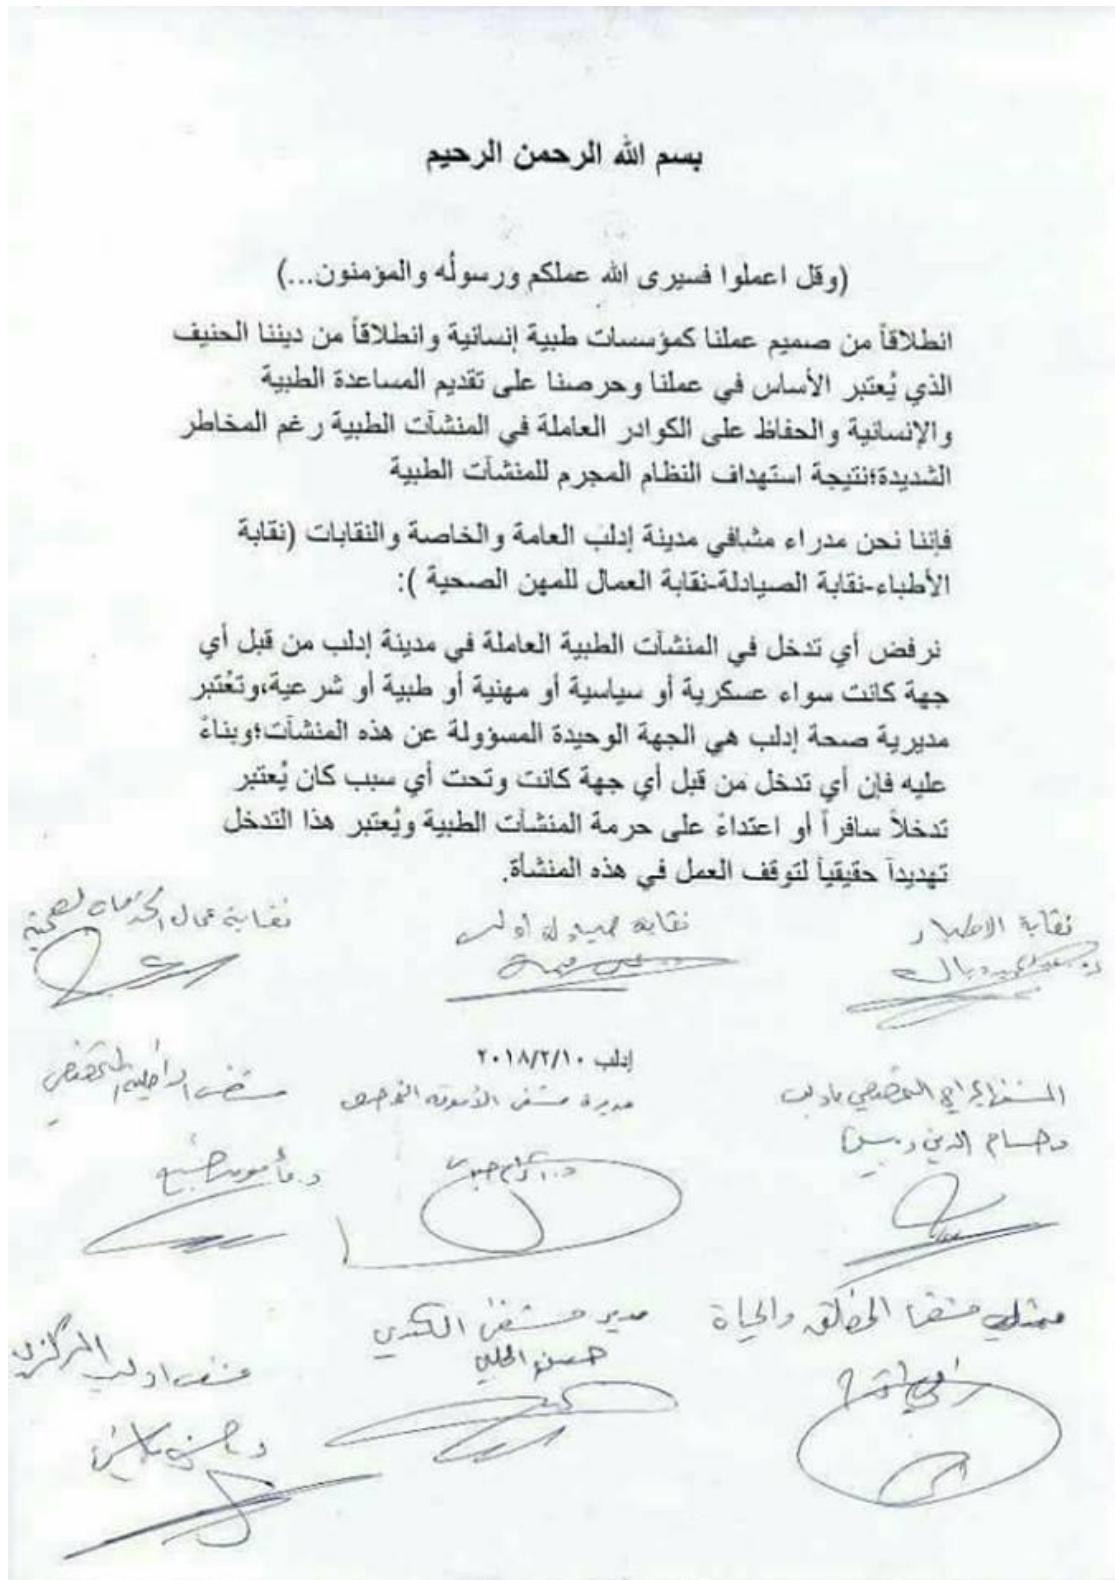 بسم الله الرحمن الرحيم
(وقل اعملوا فسيرى الله عملكم ورسولُه والمؤمنون...)
انطلاقاً من صميم عملنا كمؤسسات طبية إنسانية وانطلاقاً من ديننا الحنيف
الذي يُعتبر الأساس في عملنا وحرصنا على تقديم المساعدة الطبية
والإنسانية والحفاظ على الكوادر العاملة في المنشآت الطبية رغم المخاطر
الشديدة؛نتيجة استهداف النظام المجرم للمنشآت الطبية
فإننا نحن مدراء مشافي مدينة إدلب العامة والخاصة والنقابات (نقابة
الأطباء-نقابة الصيادلة-نقابة العمال للمهن الصحية ):
نرفض أي تدخل في المنشآت الطبية العاملة في مدينة إدلب من قبل أي
جهة كانت سواء عسكرية أو سياسية أو مهنية أو طبية أو شرعية،وتُعتبر
مديرية صحة إدلب هي الجهة الوحيدة المسؤولة عن هذه المنشآت؛وبناءً
عليه فإن أي تدخل من قبل أي جهة كانت وتحت أي سبب كان يُعتبر
تدخلاً سافراً أو اعتداءً على حرمة المنشآت الطبية ويُعتبر هذا التدخل
تهديداً حقيقياً لتوقف العمل في هذه المنشأة.
نقابة الاطباء نقابة صيادلة ادلب نقابة عمال الخدمات الصحية
إدلب ٢٠١٨/٢/١٠
المشفى الجراحي التخصصي بادلب مديرة مشفى الأمومة التخصصي مشفى الداخلية التخصصي
د.حسام الدين دبيس
مدير مشفى الكندي
حسن
مشفى ادلب المركزي